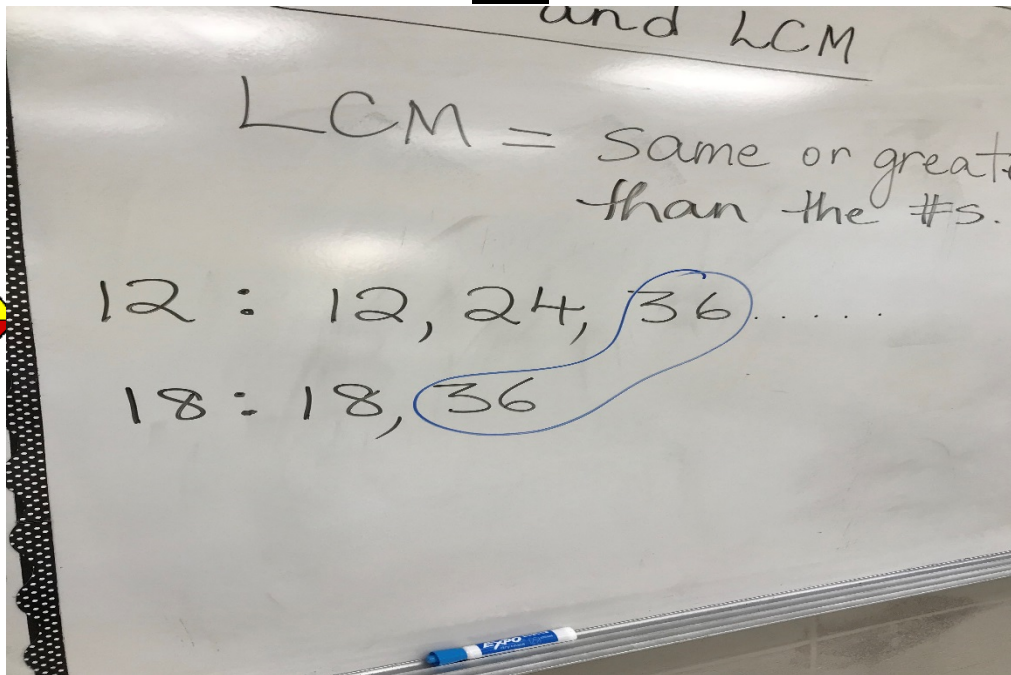 and LCM
LCM = same or greate
than the #s.
12 : 12, 24, 36......
18 : 18, 36
EXPO